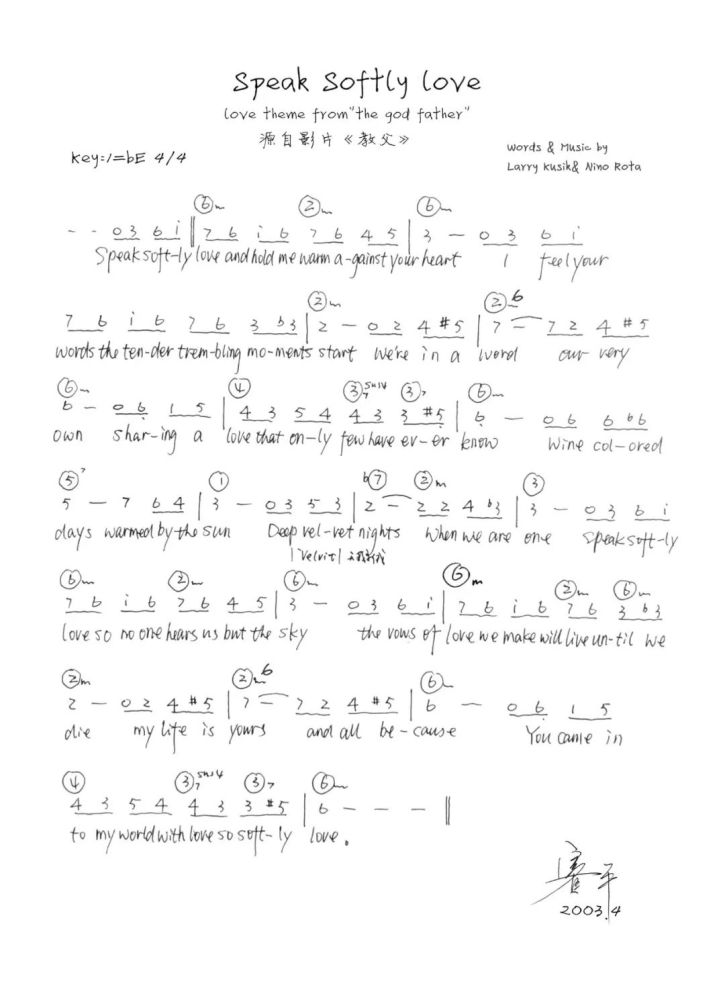 Speak Softly love
love theme from"the god father"
源自影片《教父》
Key:1=bE 4/4
Words & Music by
Larry Kusik& Nino Rota
⑥m ②m ⑥m
- - 0 3 6 i ‖ 7 6 i 6 7 6 4 5 | 3 — 0 3 6 i
Speak soft-ly love and hold me warm a-gainst your heart I feel your
②m ②m6
7 6 i 6 7 6 3 b3 | 2 — 0 2 4 #5 | 7 — 7 2 4 #5
words the ten-der trem-bling mo-ments start we're in a word our very
⑥m ④ ③7sus4 ③7 ⑥m
6 — 0 6 1 5 | 4 3 5 4 4 3 3 #5 | 6 — 0 6 6 b6
own shar-ing a love that on-ly few have ev-er know wine col-ored
⑤7 ① b⑦ ②m ③
5 — 7 6 4 | 3 — 0 3 5 3 | 2 — 2 2 4 b3 | 3 — 0 3 6 i
days warmed by the sun Deep vel-vet nights when we are one Speak soft-ly
⑥m ②m ⑥m ⑥m ②m ⑥m
7 6 i 6 7 6 4 5 | 3 — 0 3 6 i | 7 6 i 6 7 6 3 b3
love so no one hears us but the sky the vows of love we make will live un-til we
②m ②m6 ⑥m
2 — 0 2 4 #5 | 7 — 7 2 4 #5 | 6 — 0 6 1 5
die my life is yours and all be-cause You came in
④ ③7sus4 ③7 ⑥m
4 3 5 4 4 3 3 #5 | 6 — — — ‖
to my world with love so soft-ly love.
2003.4